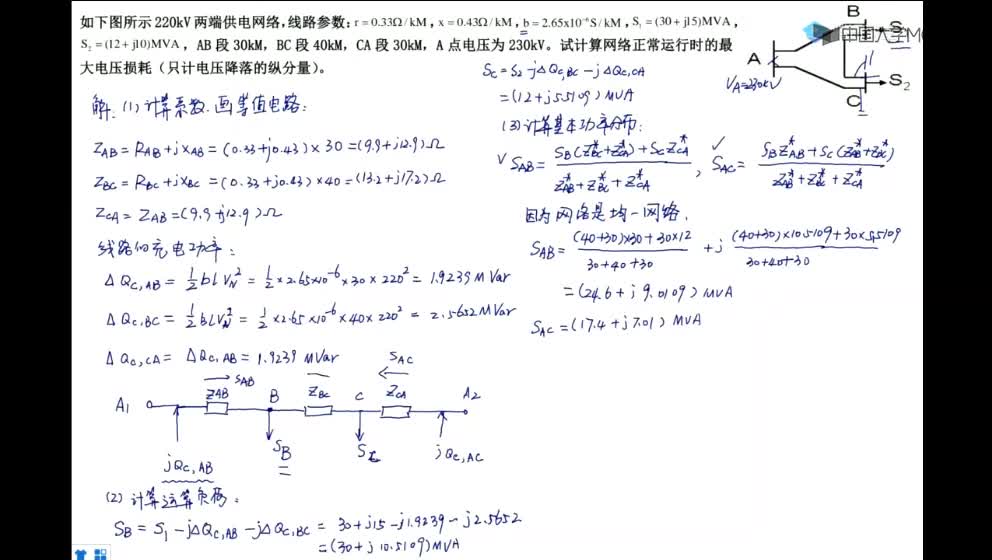 如下图所示 220kV 两端供电网络，线路参数：r = 0.33Ω / kM，x = 0.43Ω / kM，b = 2.65x10⁻⁶S / kM，S₁ = (30 + j15)MVA，
S₂ = (12 + j10)MVA，AB 段 30kM，BC 段 40kM，CA 段 30kM，A 点电压为 230kV。试计算网络正常运行时的最
大电压损耗（只计电压降落的纵分量）。
B
A
C
S₂
V_A=230kV
中国大学M
解：(1) 计算系数，画等值电路：
Z_AB = R_AB + jX_AB = (0.33+j0.43) × 30 = (9.9+j12.9) Ω
Z_BC = R_BC + jX_BC = (0.33+j0.43) × 40 = (13.2+j17.2) Ω
Z_CA = Z_AB = (9.9+j12.9) Ω
线路的充电功率：
ΔQ_C,AB = 1/2 blV_N² = 1/2 × 2.65×10⁻⁶ × 30 × 220² = 1.9239 MVar
ΔQ_C,BC = 1/2 blV_N² = 1/2 × 2.65×10⁻⁶ × 40 × 220² = 2.5652 MVar
ΔQ_C,CA = ΔQ_C,AB = 1.9239 MVar
S_AB S_AC
A₁ Z_AB B Z_BC C Z_CA A₂
jQ_C,AB S_B S_C jQ_C,AC
(2) 计算运算负荷：
S_B = S₁ - jΔQ_C,AB - jΔQ_C,BC = 30+j15 - j1.9239 - j2.5652
= (30+j10.5109) MVA
S_C = S₂ - jΔQ_C,BC - jΔQ_C,CA
= (12+j5.5109) MVA
(3) 计算基本功率分布：
√ S_AB = (S_B(Z*_BC+Z*_CA)+S_C Z*_CA) / (Z*_AB+Z*_BC+Z*_CA)， √ S_AC = (S_B Z*_AB+S_C(Z*_AB+Z*_BC)) / (Z*_AB+Z*_BC+Z*_CA)
因为网络是均一网络，
S_AB = ((40+30)×30+30×12) / (30+40+30) + j ((40+30)×10.5109+30×5.5109) / (30+40+30)
= (24.6+j9.0109) MVA
S_AC = (17.4+j7.01) MVA